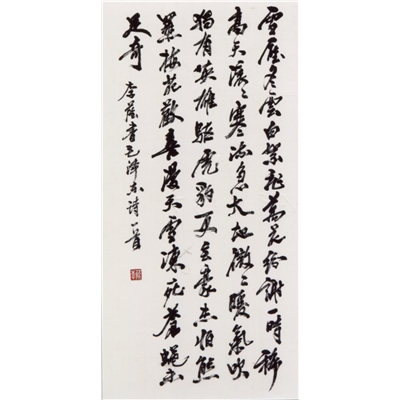 雪壓冬雲白絮飛萬花紛謝一時稀
高天滚々寒流急大地微々暖氣吹
獨有英雄驅虎豹更無豪杰怕熊
羆梅花歡喜漫天雪凍死蒼蠅未
足奇
李 書毛澤东詩一首